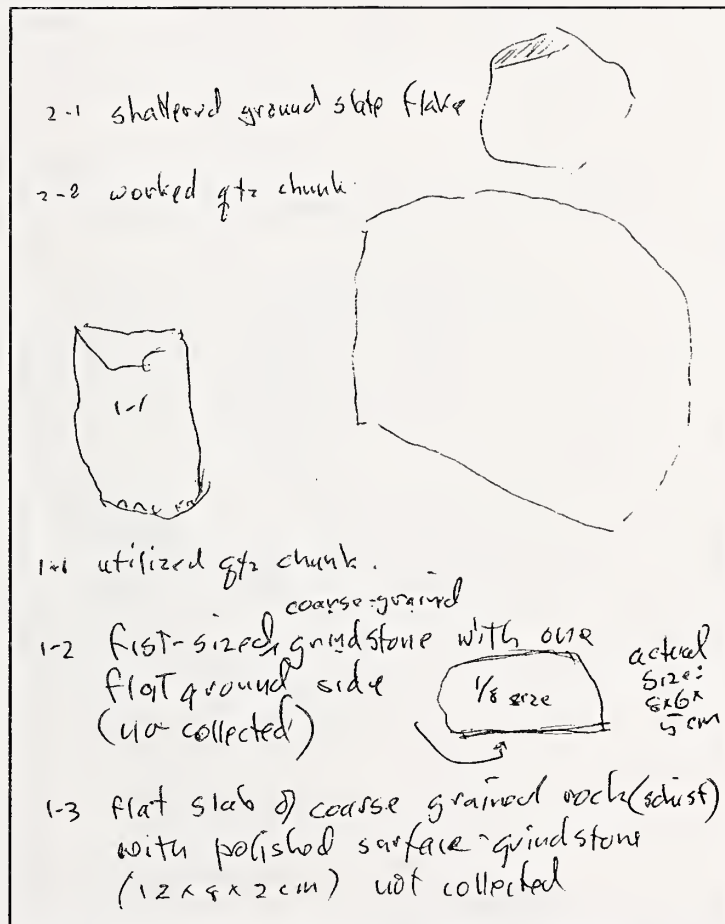 2-1 shattered ground slate flake
2-2 worked qtz chunk.
1-1
1-1 utilized qtz chunk.
coarse-grained
1-2 fist-sized, grindstone with one
flat ground side
(not collected)
1/8 size
actual
size:
8x6x
5 cm
1-3 flat slab of coarse grained rock (schist)
with polished surface-grindstone
(12 x 8 x 2 cm) not collected